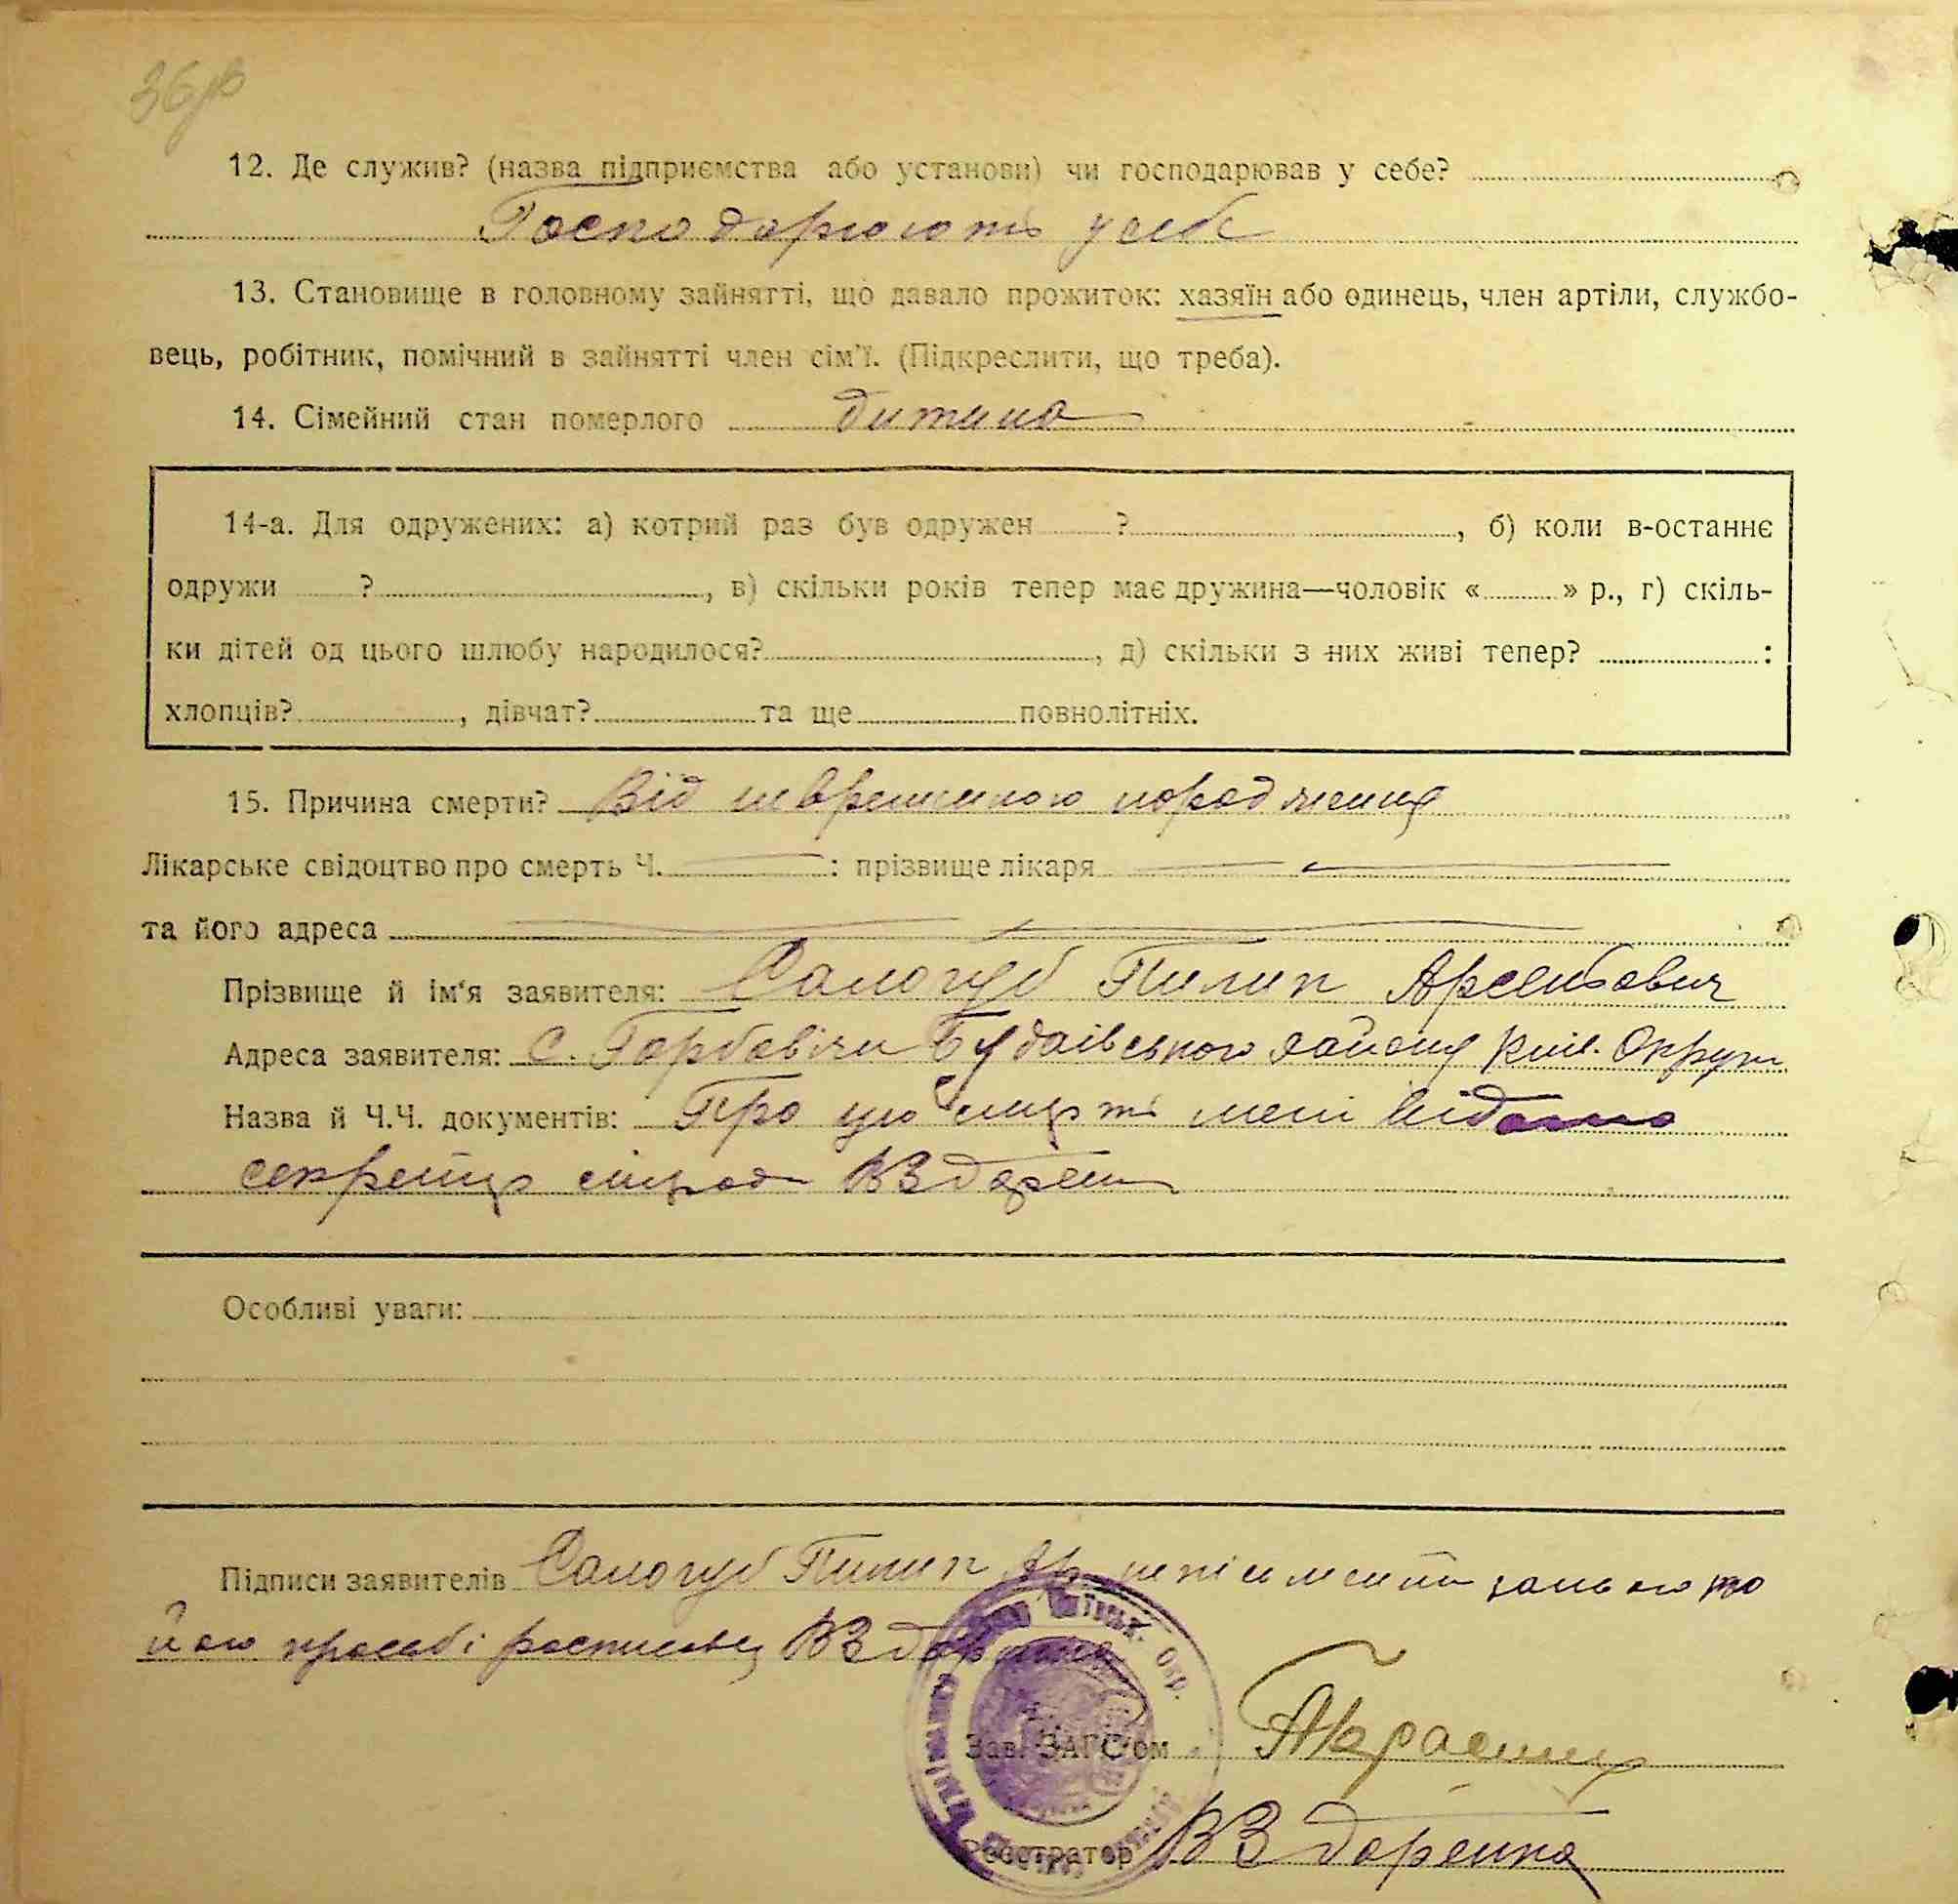 36
12. Де служив? (назва підприємства або установи) чи господарював у себе?
Господарюють у себе
13. Становище в головному зайнятті, що давало прожиток: хазяїн або одинець, член артіли, службо-
вець, робітник, помічний в зайнятті член сім'ї. (Підкреслити, що треба).
14. Сімейний стан померлого дитина
14-а. Для одружених: а) котрий раз був одружен ? , б) коли в-останнє
одружи ? , в) скільки років тепер має дружина—чоловік « » р., г) скіль-
ки дітей од цього шлюбу народилося? , д) скільки з них живі тепер? :
хлопців? , дівчат? та ще повнолітніх.
15. Причина смерти? Від
Лікарське свідоцтво про смерть Ч. : прізвище лікаря
та його адреса
Прізвище й ім'я заявителя: Салогуб Пилип Арсентович
Адреса заявителя: с. Горбовічи Будаївського району Київ. Округи
Назва й Ч.Ч. документів: Про цю смерть мені відомо
секретар сільради ВЗдорен
Особливі уваги:
Підписи заявителів Салогуб Пилип Ар
його прозьбі росписавсь ВЗдоренко
Зав. ЗАГС'ом
Реєстратор ВЗдоренко